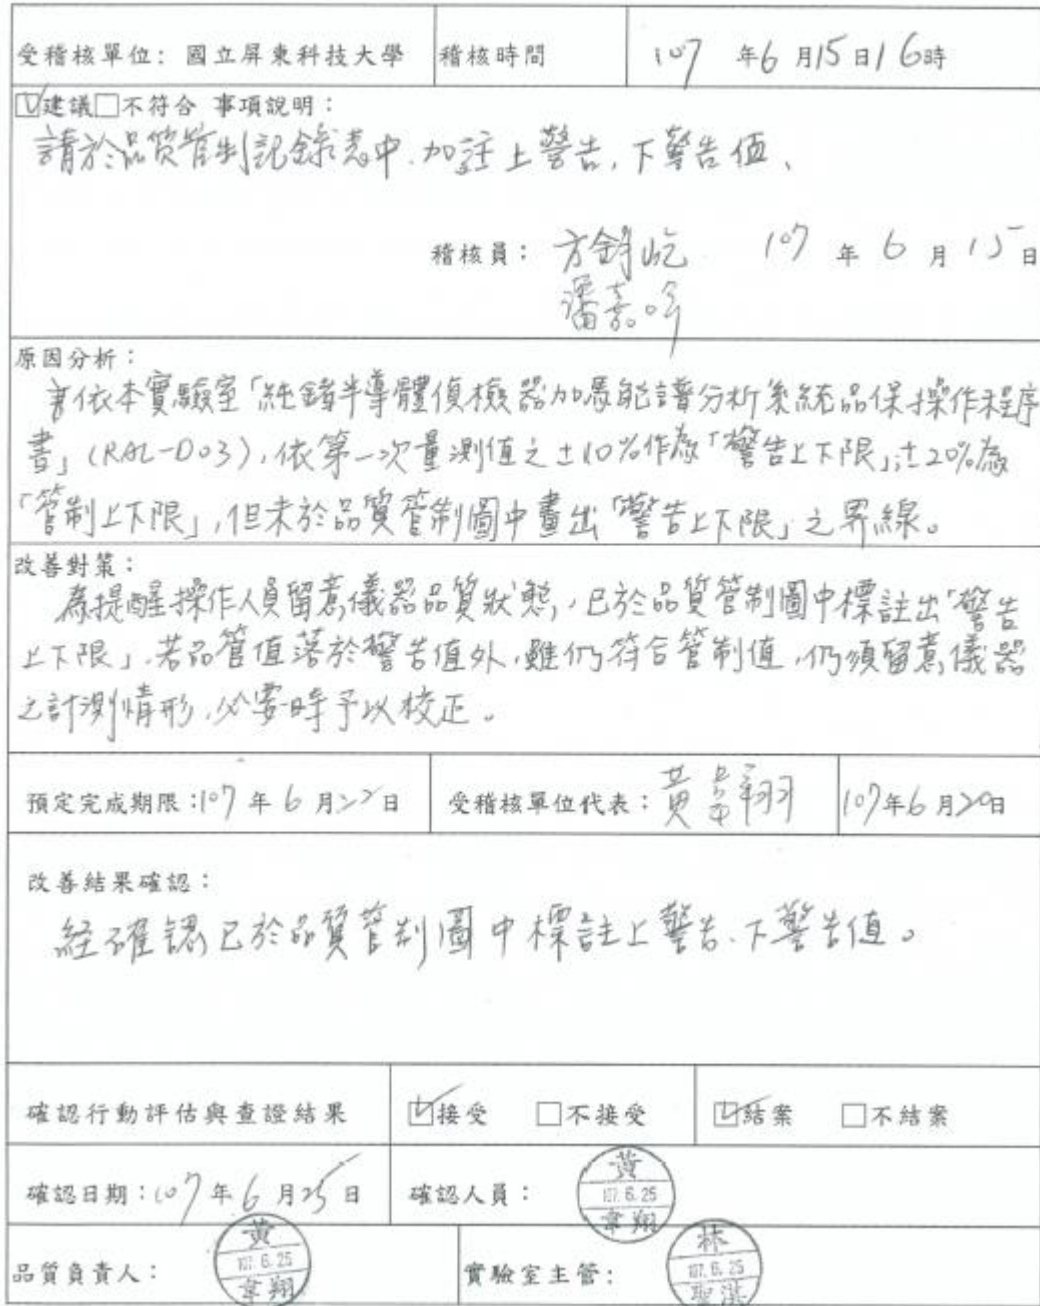 受稽核單位：國立屏東科技大學 稽核時間 107 年6 月15日16時
☑建議□不符合 事項說明：
請於品質管制記錄表中，加註上警告，下警告值、
稽核員： 方鈞屹 107 年 6 月 15 日
潘嘉吟
原因分析：
依本實驗室「純鍺半導體偵檢器加馬能譜分析系統品保操作程序
書」(RAL-D03)，依第一次量測值之±10%作為「警告上下限」；±20%為
「管制上下限」，但未於品質管制圖中畫出「警告上下限」之界線。
改善對策：
為提醒操作人員留意儀器品質狀態，已於品質管制圖中標註出「警告
上下限」，若品管值落於警告值外，雖仍符合管制值，仍須留意儀器
之計測情形，必要時予以校正。
預定完成期限：107 年 6 月22日 受稽核單位代表：黃韋翔 107年6 月20日
改善結果確認：
經確認已於品質管制圖中標註上警告、下警告值。
確認行動評估與查證結果 ☑接受 □不接受 ☑結案 □不結案
確認日期：107 年 6 月25 日 確認人員： 黃 107.6.25 韋翔
品質負責人： 黃 107.6.25 韋翔 實驗室主管： 林 107.6.25 聖淇